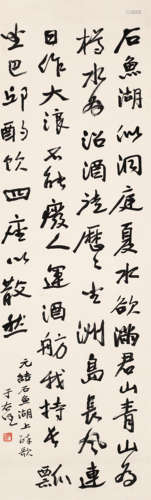 石魚湖似洞庭夏水欲滿君山青山為
樽水為沼酒徒歷々坐洲島長風連
日作大浪不能廢人運酒舫我持長瓢
坐巴邱酌飲四座以散愁
元結石魚湖上醉歌
于右任